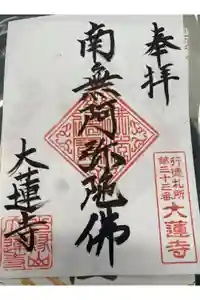 奉拝
南無阿弥陀佛
大蓮寺
行徳札所
第三十三番
大蓮寺